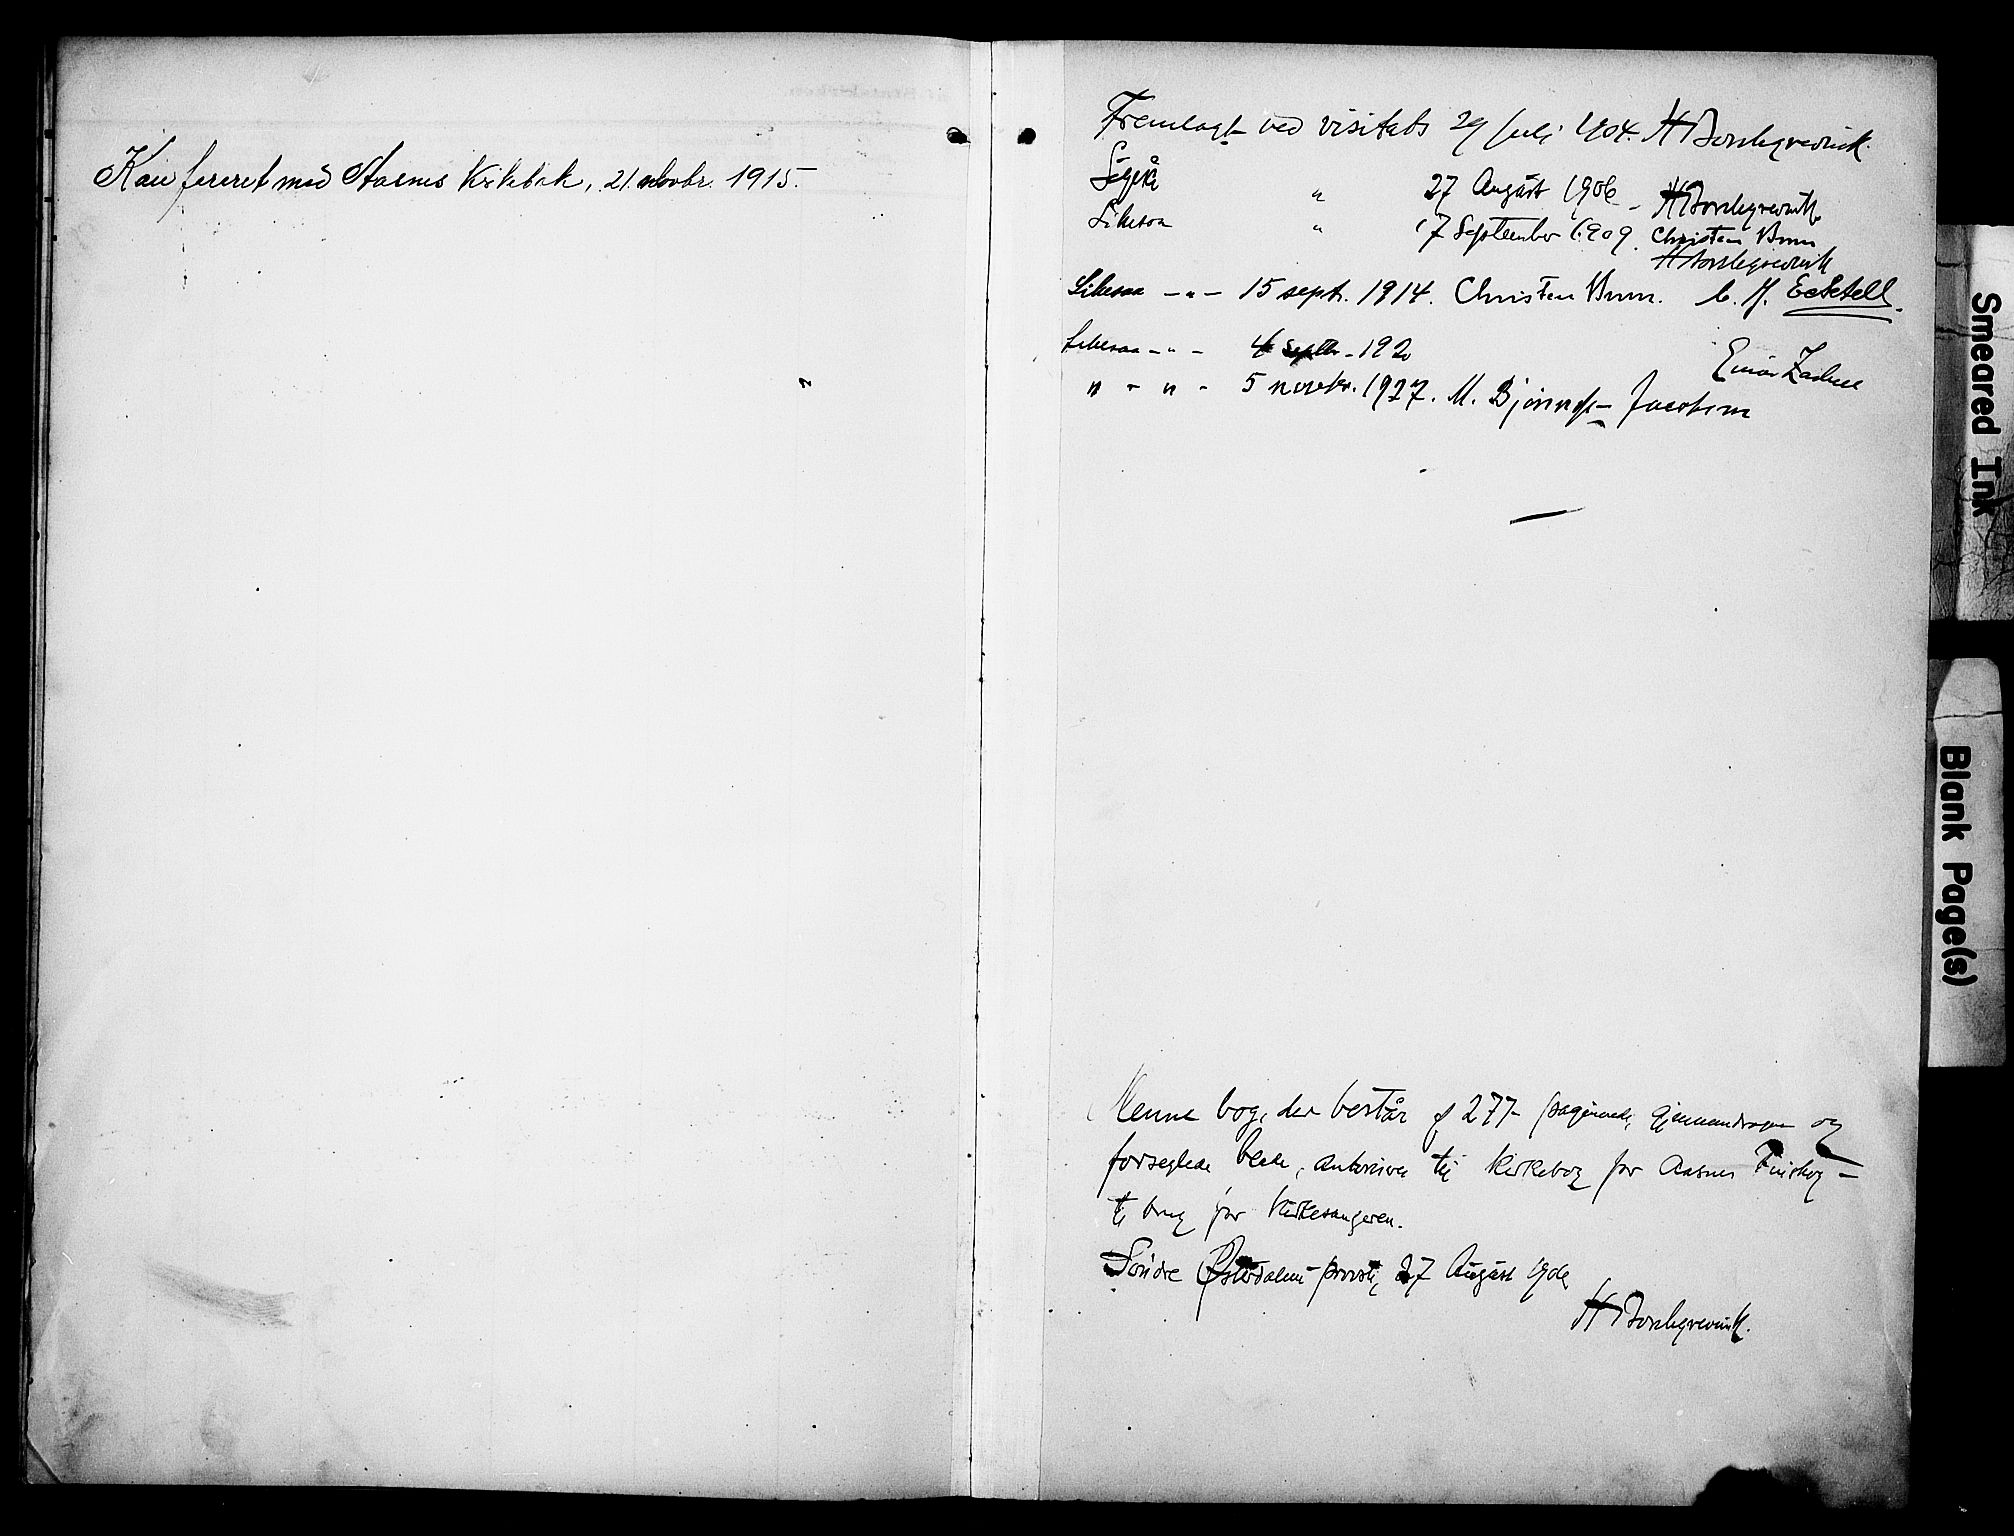 Konfereret med Aasnes Kirkebok, 21. novbr. 1915.
Fremlagt ved visitats 29 Juli 1904. H Borchgrevink.
Ligeså " 27 August 1906 - H Borchgrevink.
Likesaa " 17 September 1909. Christen Brun
H Borchgrevink
Likesaa - " - 15 sept. 1914. Christen Brun.
Likesaa - " - 4 septbr. 1920 Einar
" - " - 5 novbr. 1927. M. Bjønnes-Jacobsen
Denne bog, der består af 277 paginerede, gjennemdragne og
forseglede blade, autoriseres til kirkebog for Aasnes Finskog -
til brug for kirkesangeren.
Søndre Østerdalens provsti, 27 August 1906
H Borchgrevink.
Smeared Ink
Blank Page(s)